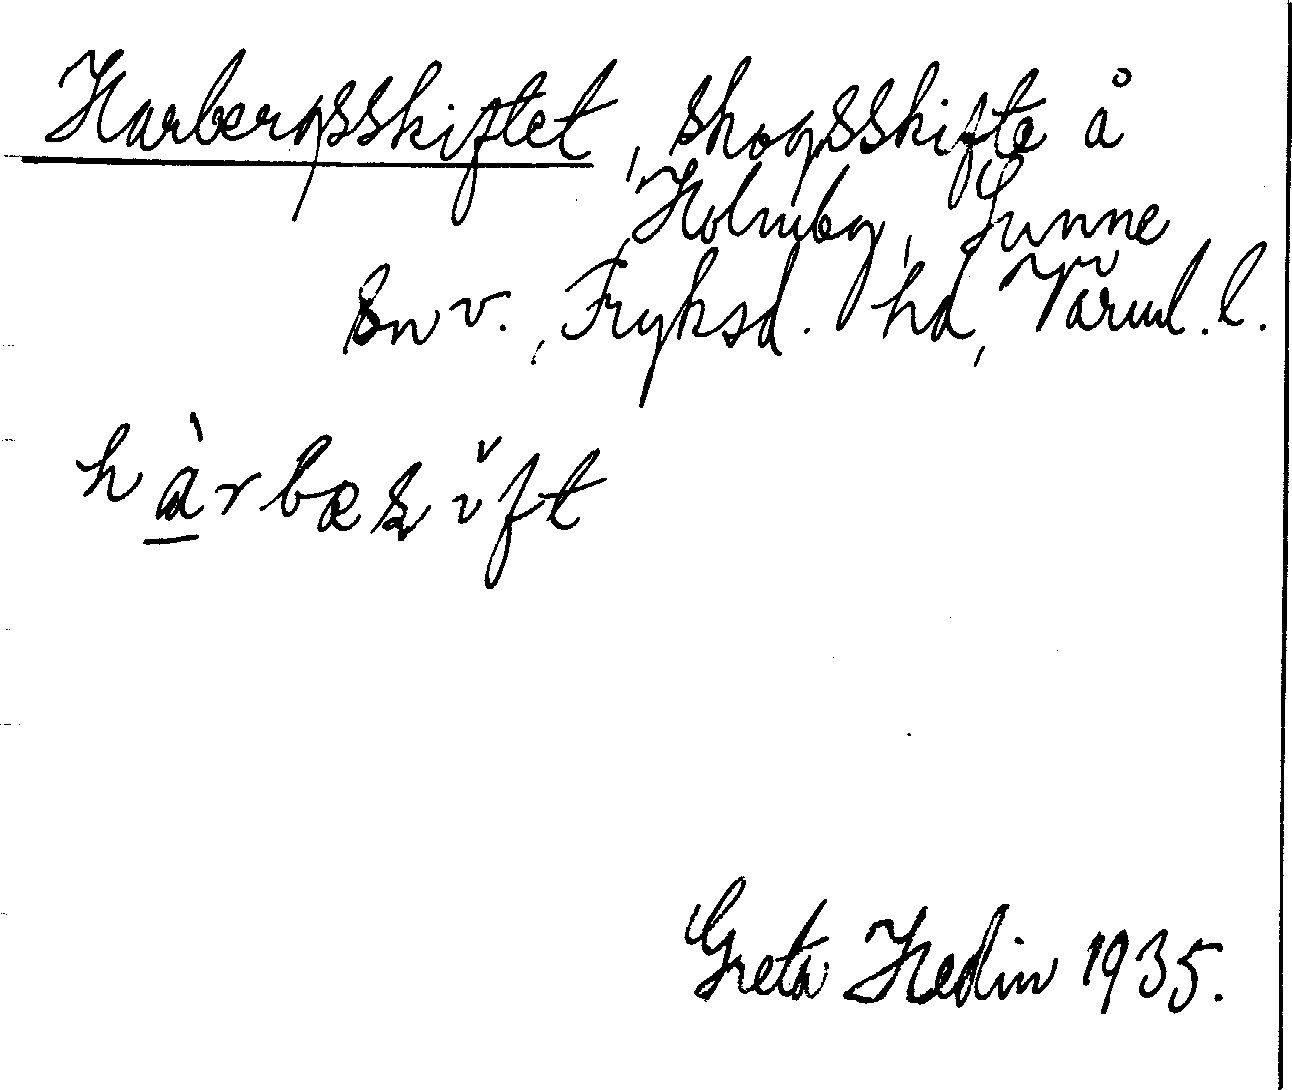 Harbergsskiftet, skogsskifte å
Holmby, Sunne
sn v., Fryksd. hd, Värml. l.
hàrbæsĭft
Greta Hedin 1935.